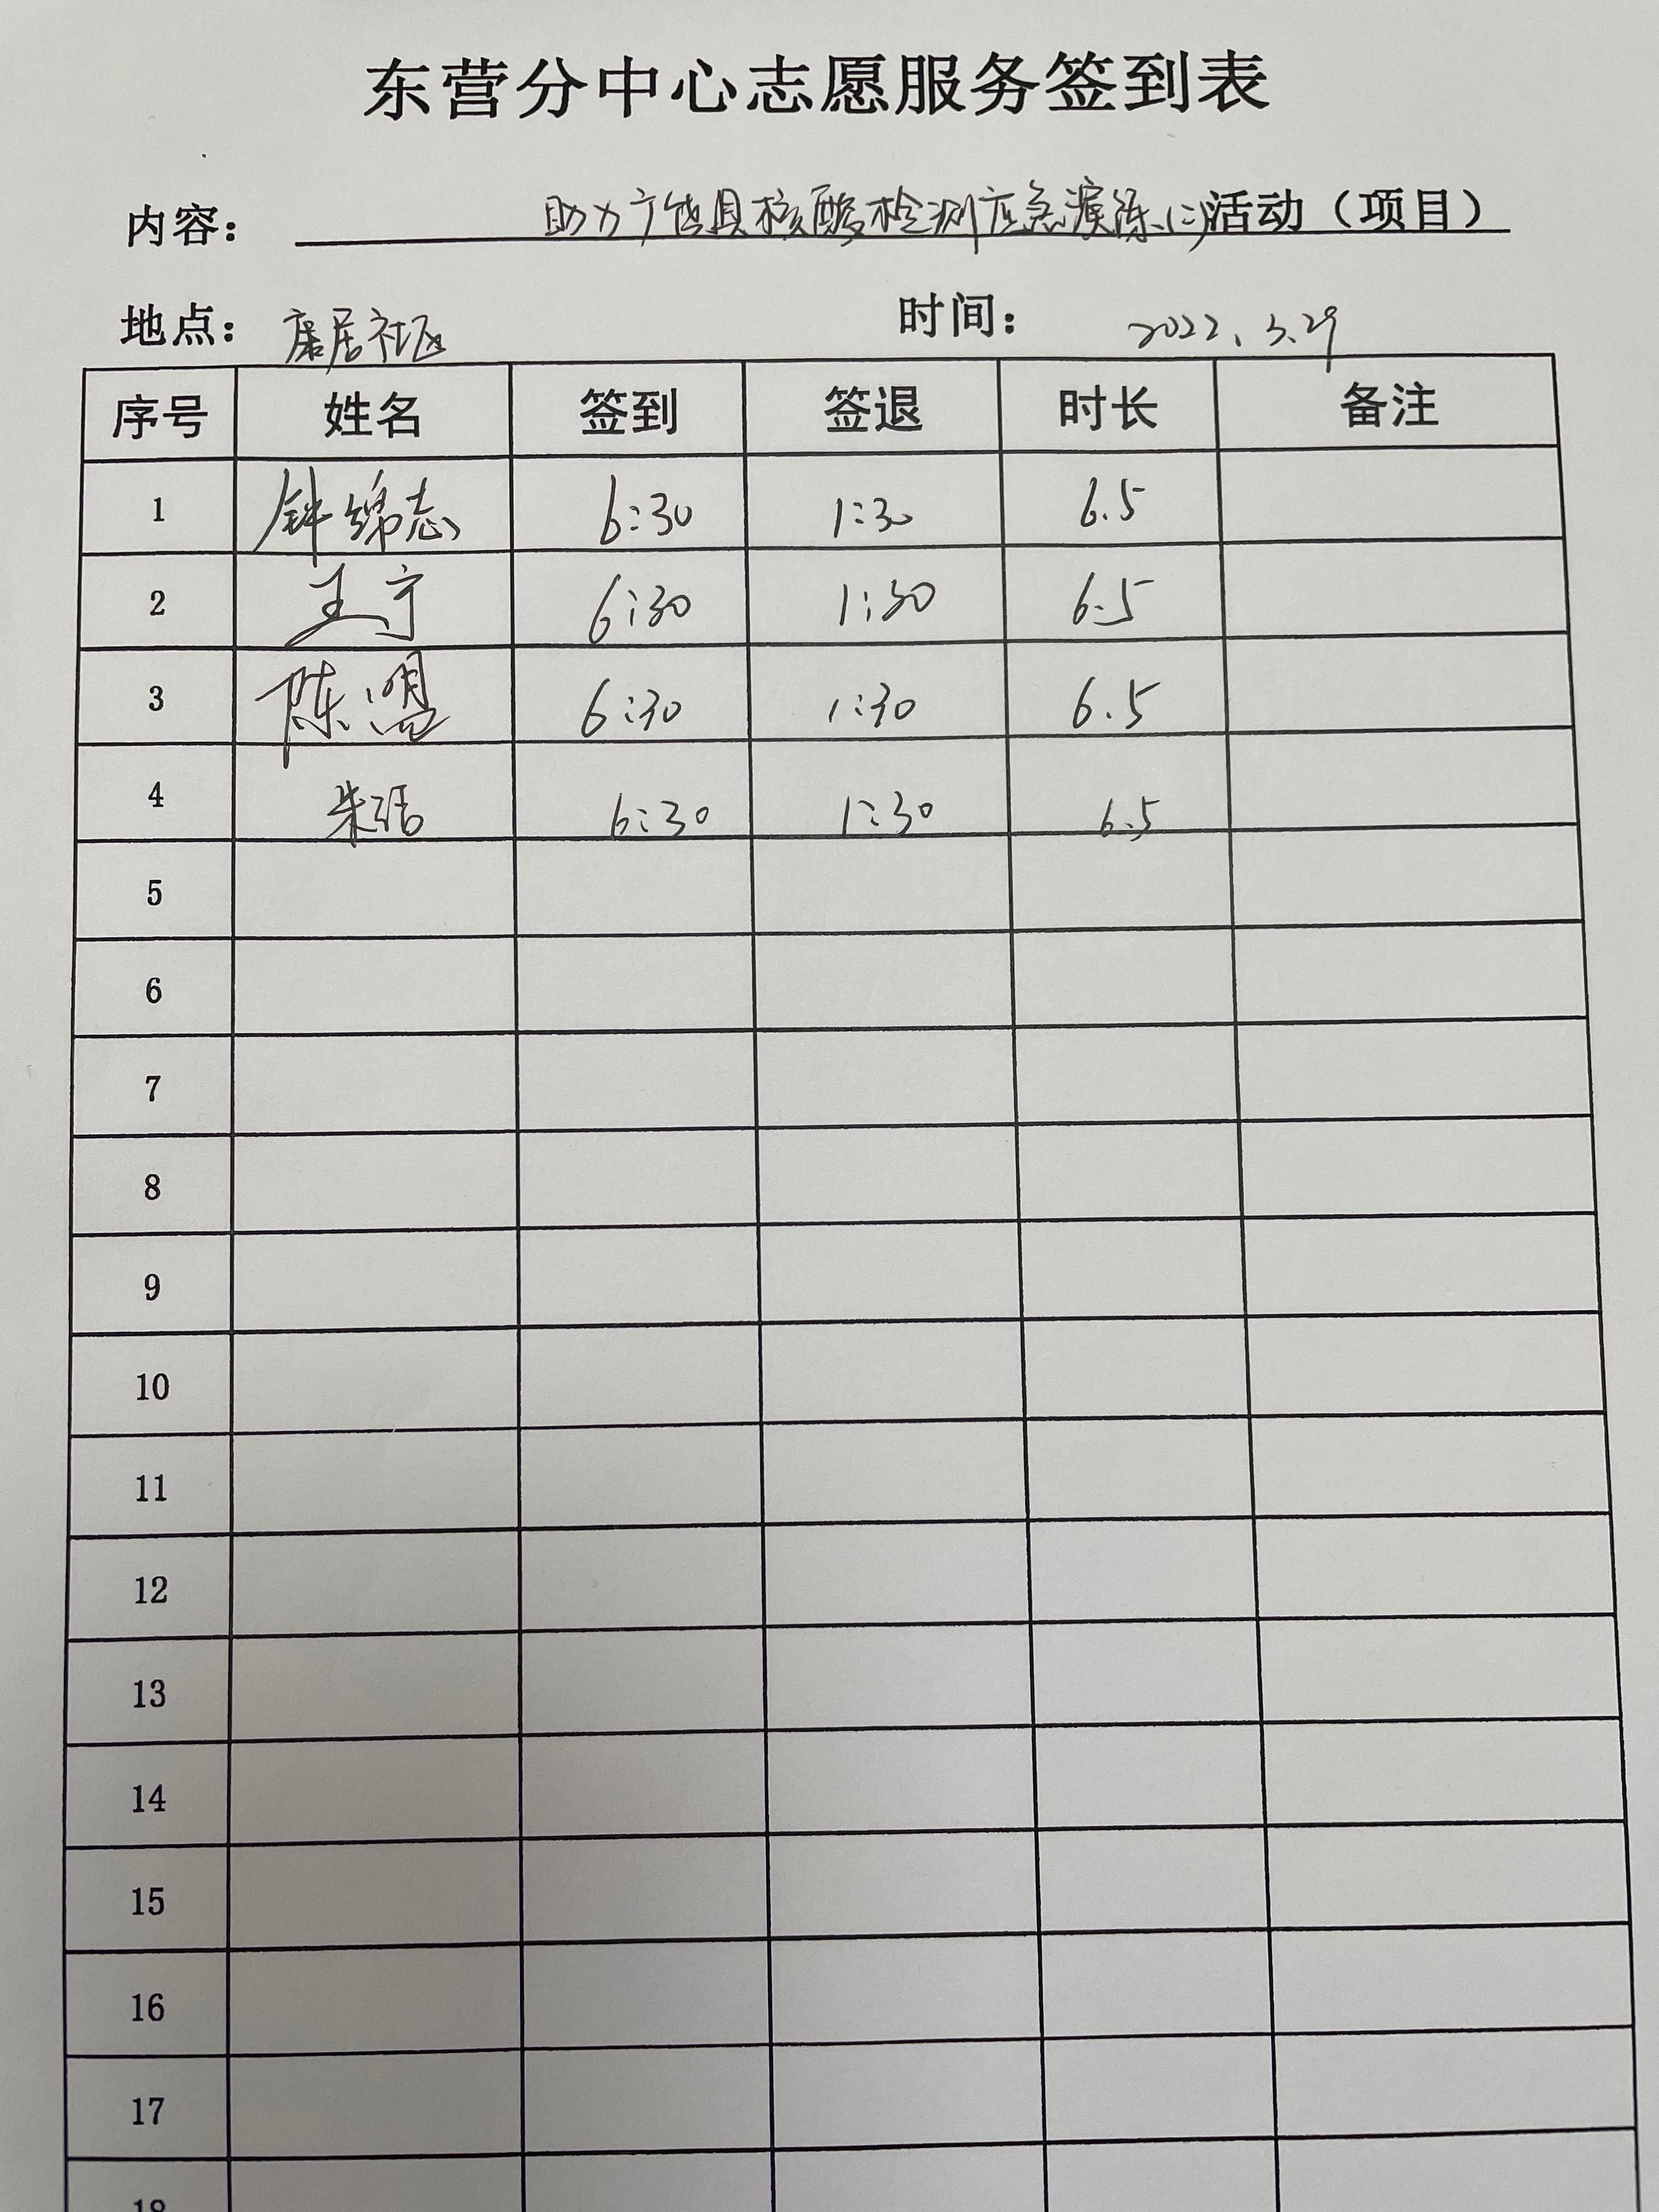 东营分中心志愿服务签到表
内容： 助力广饶县核酸检测应急演练(二)活动（项目）
地点： 康居社区 时间： 2022.3.29
序号 姓名 签到 签退 时长 备注
1 钟锦志 6:30 1:30 6.5
2 王宁 6:30 1:30 6.5
3 陈盟 6:30 1:30 6.5
4 朱 6:30 1:30 6.5
5
6
7
8
9
10
11
12
13
14
15
16
17
18